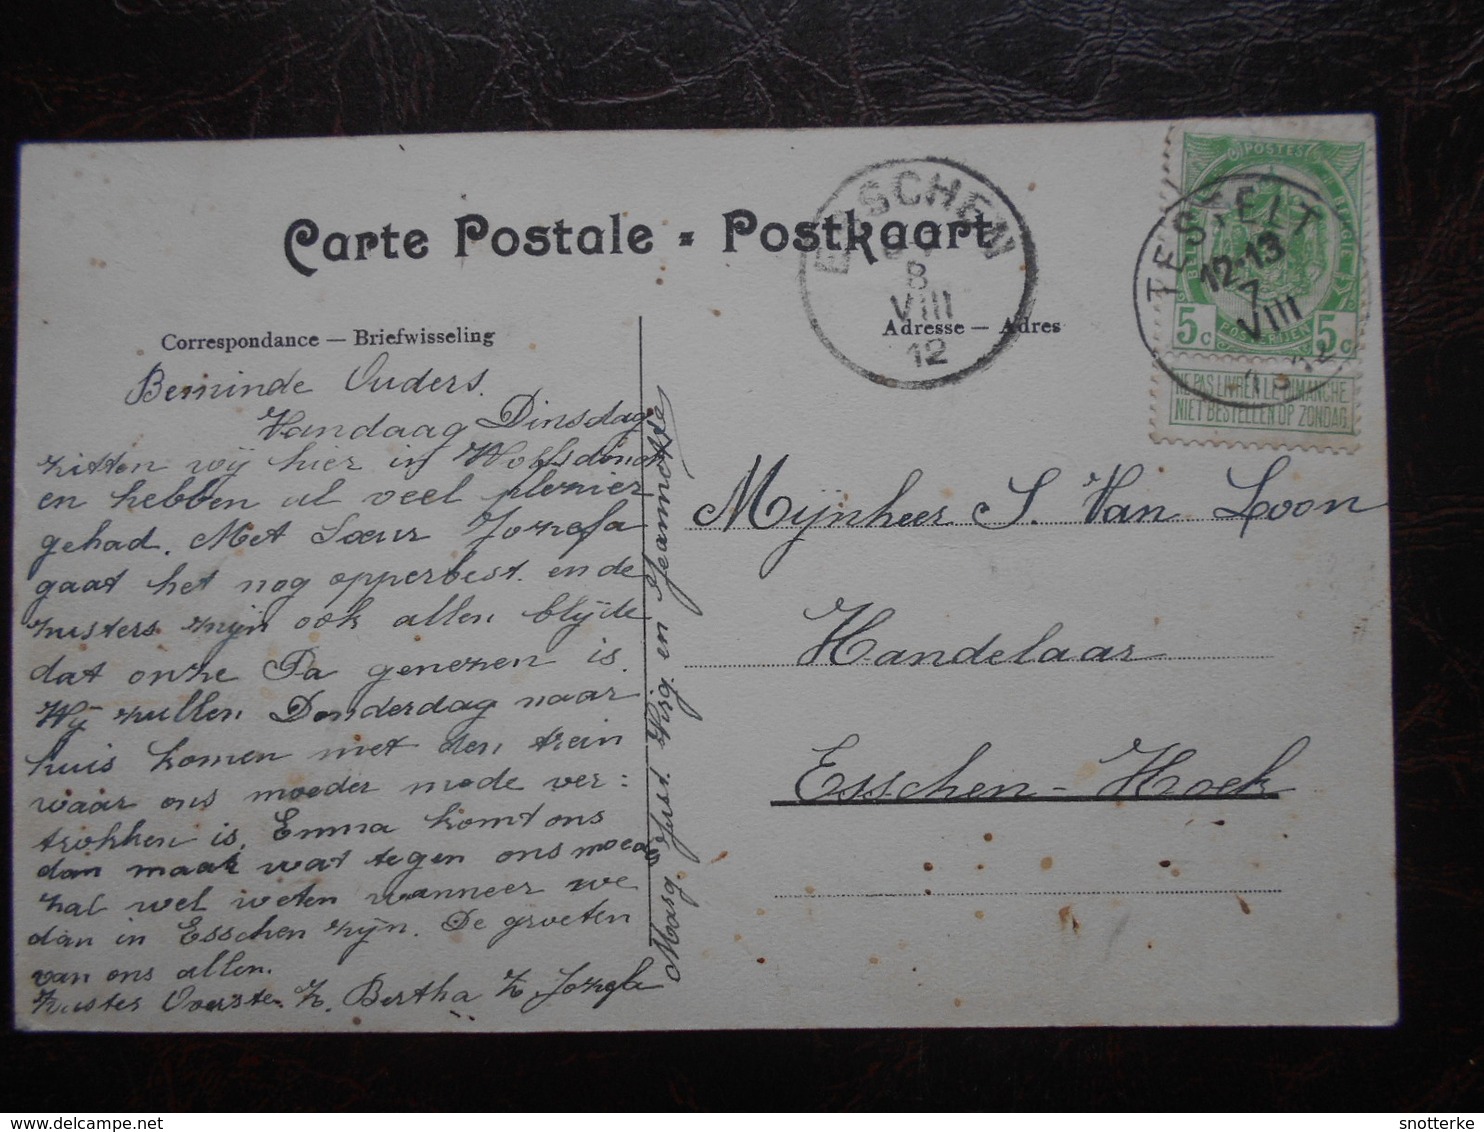 Carte Postale - Postkaart
Correspondance — Briefwisseling
Adresse — Adres
ESSCHEN
8
VIII
12
TESTELT
12-13
7
VIII
POSTES
POSTERIJEN
5c 5c
NE PAS LIVRER LE DIMANCHE
NIET BESTELLEN OP ZONDAG
Beminde Ouders.
Vandaag Dinsdag
zitten wij hier in
en hebben al veel plezier
gehad. Met Sœur Jozefa
gaat het nog opperbest. en de
zusters zijn ook allen blijde
dat onze Pa genezen is.
Wij zullen Donderdag naar
huis komen met den trein
waar ons moeder mede ver:
trokken is. Emma komt ons
dan maar wat tegen ons moeder
zal wel weten wanneer we
dan in Esschen zijn. De groeten
van ons allen.
Zuster Overste Z. Bertha Z Jozefa
Marg Just Virg. en Jeannette
Mijnheer S. Van Loon
Handelaar
Esschen-Hoek
snotterke